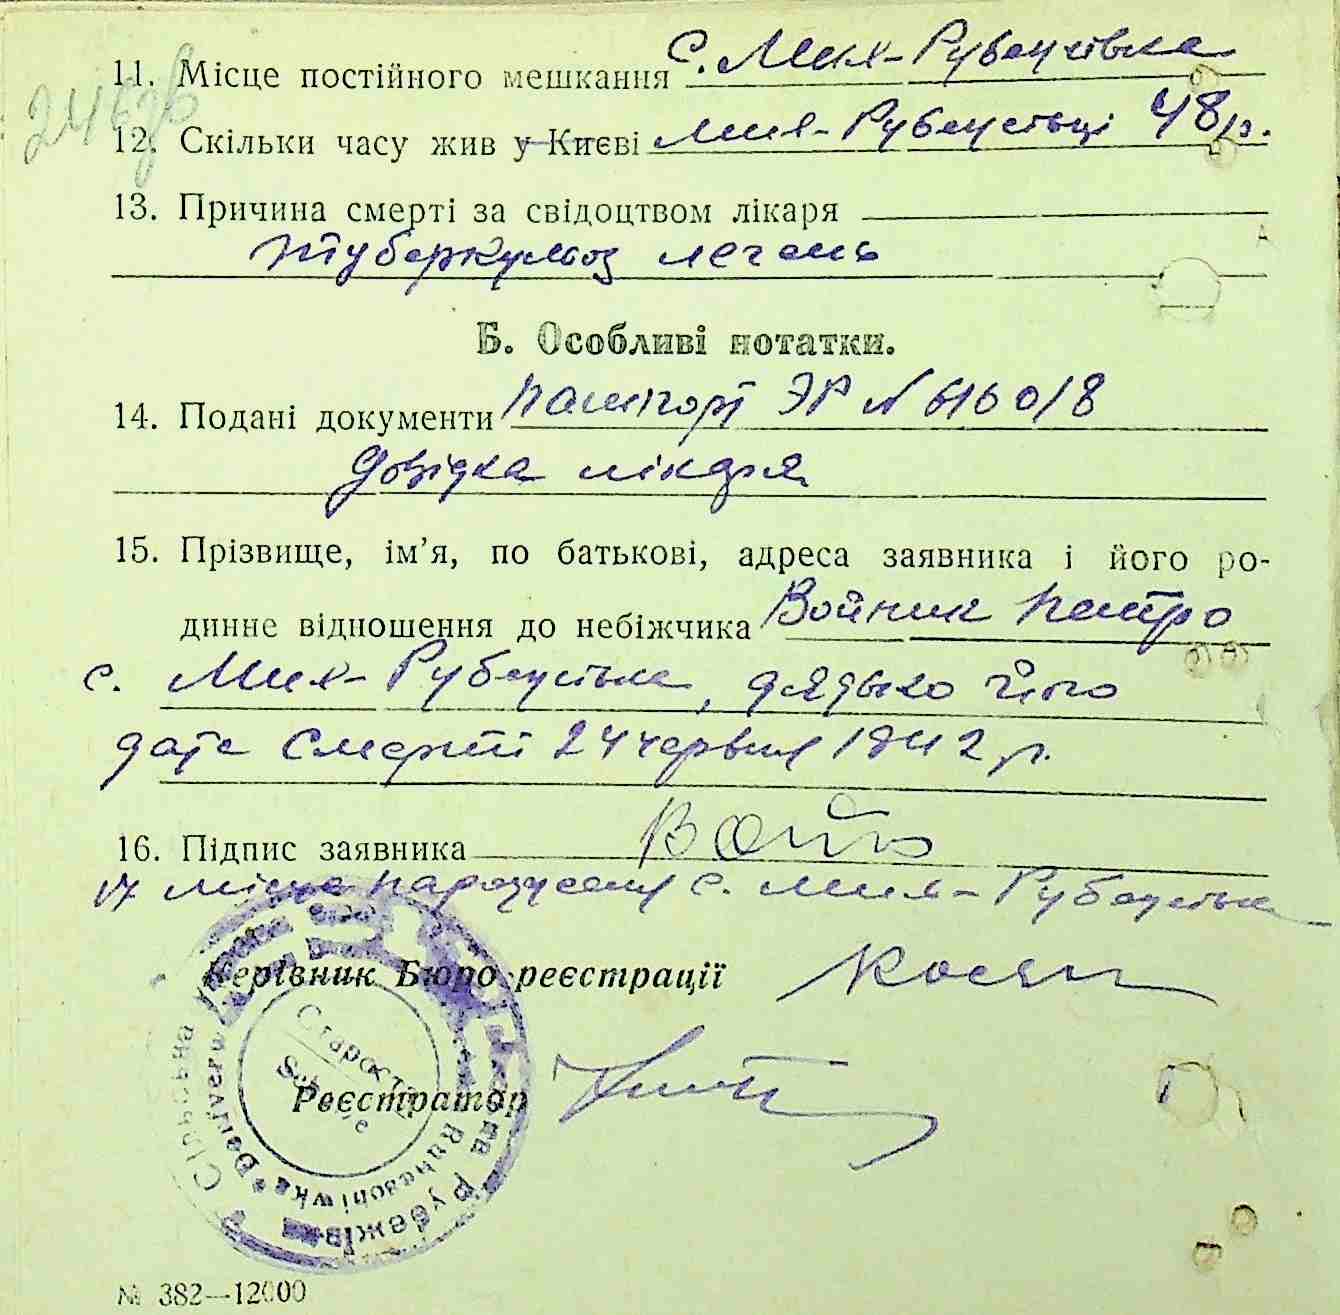 11. Місце постійного мешкання с. Мик-Рубежівка
12. Скільки часу жив у Києві Мик-Рубежівці 48 р.
13. Причина смерті за свідоцтвом лікаря
туберкульоз легень
Б. Особливі нотатки.
14. Подані документи паспорт ЭР № 616018
довідка лікаря
15. Прізвище, ім’я, по батькові, адреса заявника і його ро-
динне відношення до небіжчика Войник Петро
с. Мик-Рубежівка, дядько його
дата смерти 24 червня 1942 р.
16. Підпис заявника Вой
17 місце народження с. Мик-Рубежівка
Керівник Бюро реєстрації
Реєстратор
Староста
Сільська
Рубежівка
№ 382—12000